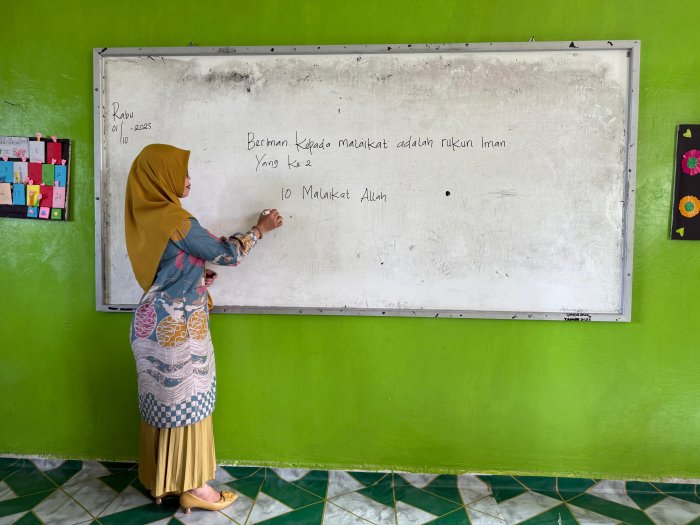 Rabu
01/10-2025
Beriman Kepada malaikat adalah rukun Iman
Yang Ke-2
10 Malaikat Allah